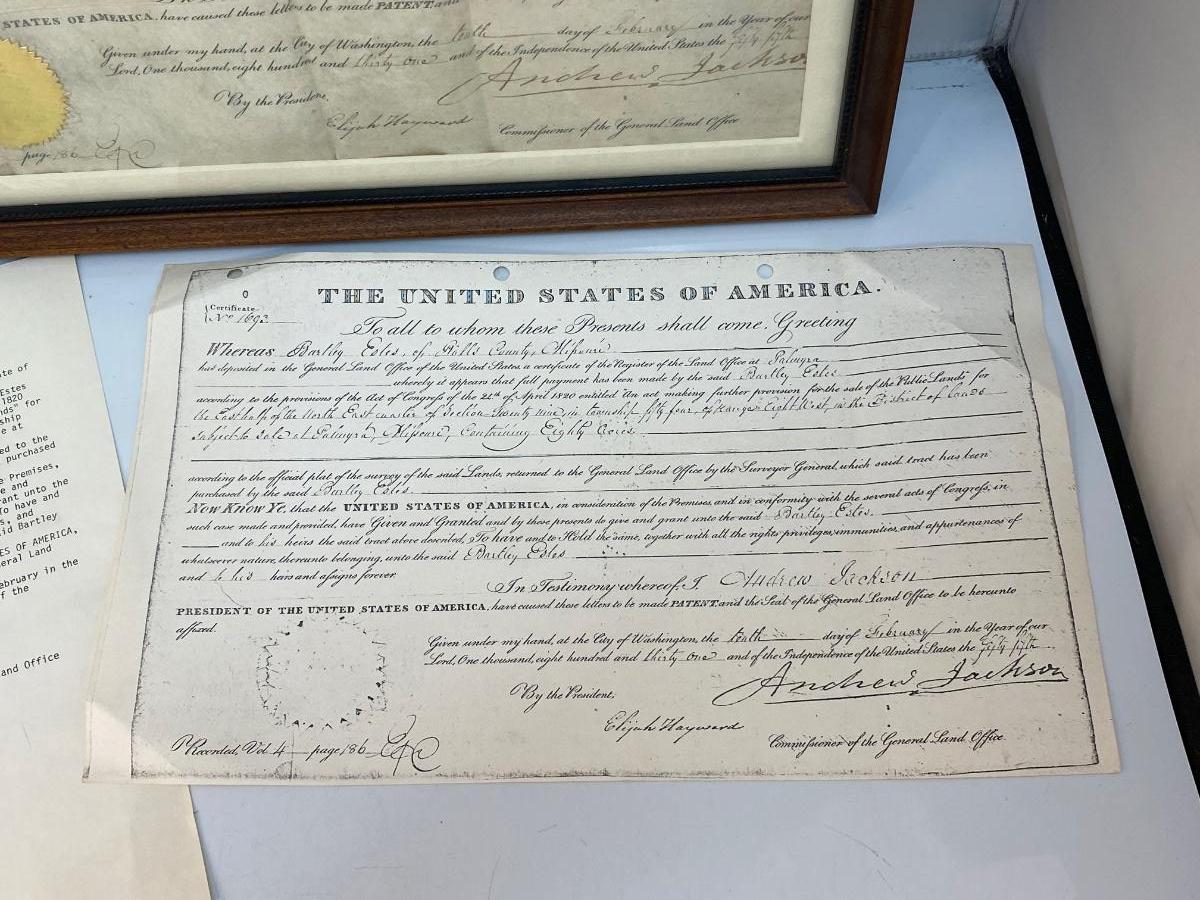 STATES OF AMERICA, have caused these letters to be made PATENT, and
Given under my hand, at the City of Washington, the tenth day of February in the Year of our
Lord, One thousand, eight hundred and thirty one and of the Independence of the United States the fifty fifth
Andrew Jackso
By the President,
Elijah Hayward
Commissioner of the General Land Office
page, 186
ate of
Estes
1820
nds" for
ship
e at
ed to the
purchased
e Premises,
e and
rant unto the
To have and
s, and
id Bartley
ES OF AMERICA,
neral Land
ebruary in the
f the
and Office
Certificate
No 1693
THE UNITED STATES OF AMERICA.
To all to whom these Presents shall come, Greeting
Whereas Bartley Estes, of Ralls County, Missouri
has deposited in the General Land Office of the United States a certificate of the Register of the Land Office at Palmyra
whereby it appears that full payment has been made by the said Bartley Estes
according to the provisions of the Act of Congress of the 24th of April 1820 entitled An act making further provision for the sale of the Public Lands" for
the East half of the North East quarter of Section Twenty nine, in township fifty four, of range Eight West, in the District of lands
Subject to Sale at Palmyra, Missouri, Containing Eighty Acres
according to the official plat of the survey of the said Lands, returned to the General Land Office by the Surveyor General, which said tract has been
purchased by the said Bartley Estes
Now Know Ye, that the UNITED STATES OF AMERICA, in consideration of the Premises, and in conformity with the several acts of Congress, in
such case made and provided, have Given and Granted and by these presents do give and grant unto the said Bartley Estes
and to his heirs the said tract above described, To have and to Hold the same, together with all the rights privileges, immunities, and appurtenances of
whatsoever nature, thereunto belonging, unto the said Bartley Estes
and to his heirs and assigns forever.
In Testimony whereof, I, Andrew Jackson
PRESIDENT OF THE UNITED STATES OF AMERICA, have caused these letters to be made PATENT and the Seal of the General Land Office to be hereunto
affixed.
Given under my hand, at the City of Washington, the tenth day of February in the Year of our
Lord, One thousand, eight hundred and thirty one and of the Independence of the United States the fifty fifth
Andrew Jackson
By the President,
Elijah Hayward
Commissioner of the General Land Office
Recorded, Vol. 4 page, 186